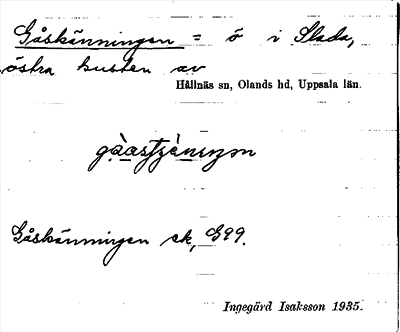 Gåskänningen = ö i Slada,
östra kusten av
Hållnäs sn, Olands hd, Uppsala län.
Gåskänningen ek, G99.
Ingegärd Isaksson 1935.